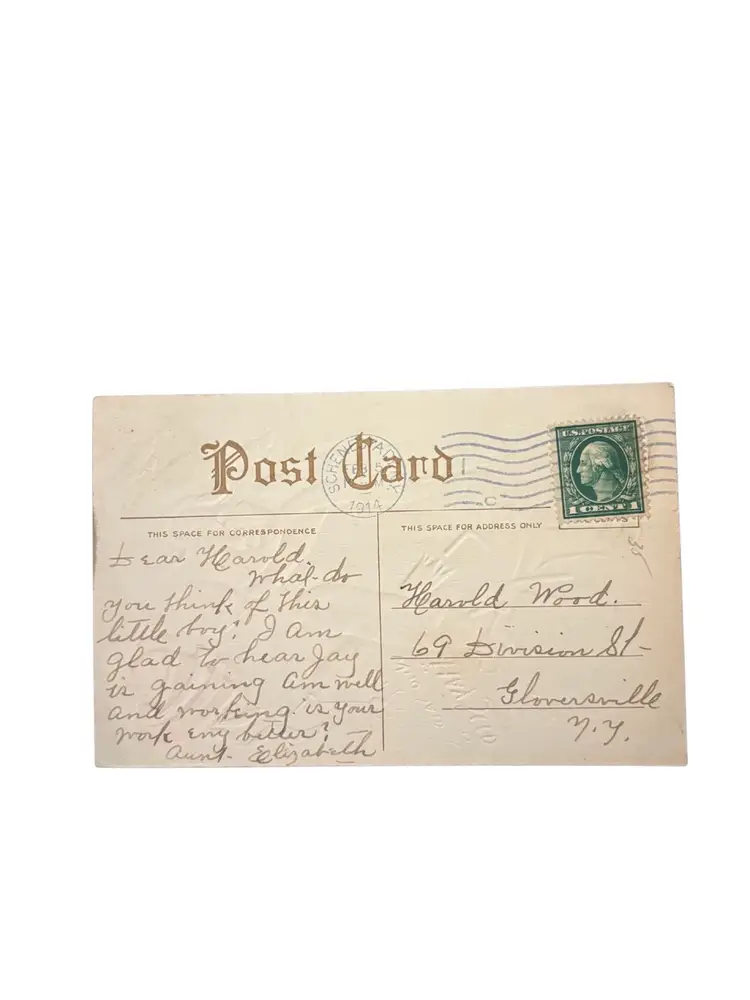 Post Card
SCHENECTADY, N.Y.
FEB 5
1914
1
C
U.S. POSTAGE
1 CENT 1
THIS SPACE FOR CORRESPONDENCE
THIS SPACE FOR ADDRESS ONLY
Dear Harold.
What do
you think of this
little boy? I am
glad to hear Jay
is gaining am well
and working is your
work eny better?
Aunt Elizabeth
Harold Wood.
69 Division St
Gloversville
N.Y.
35